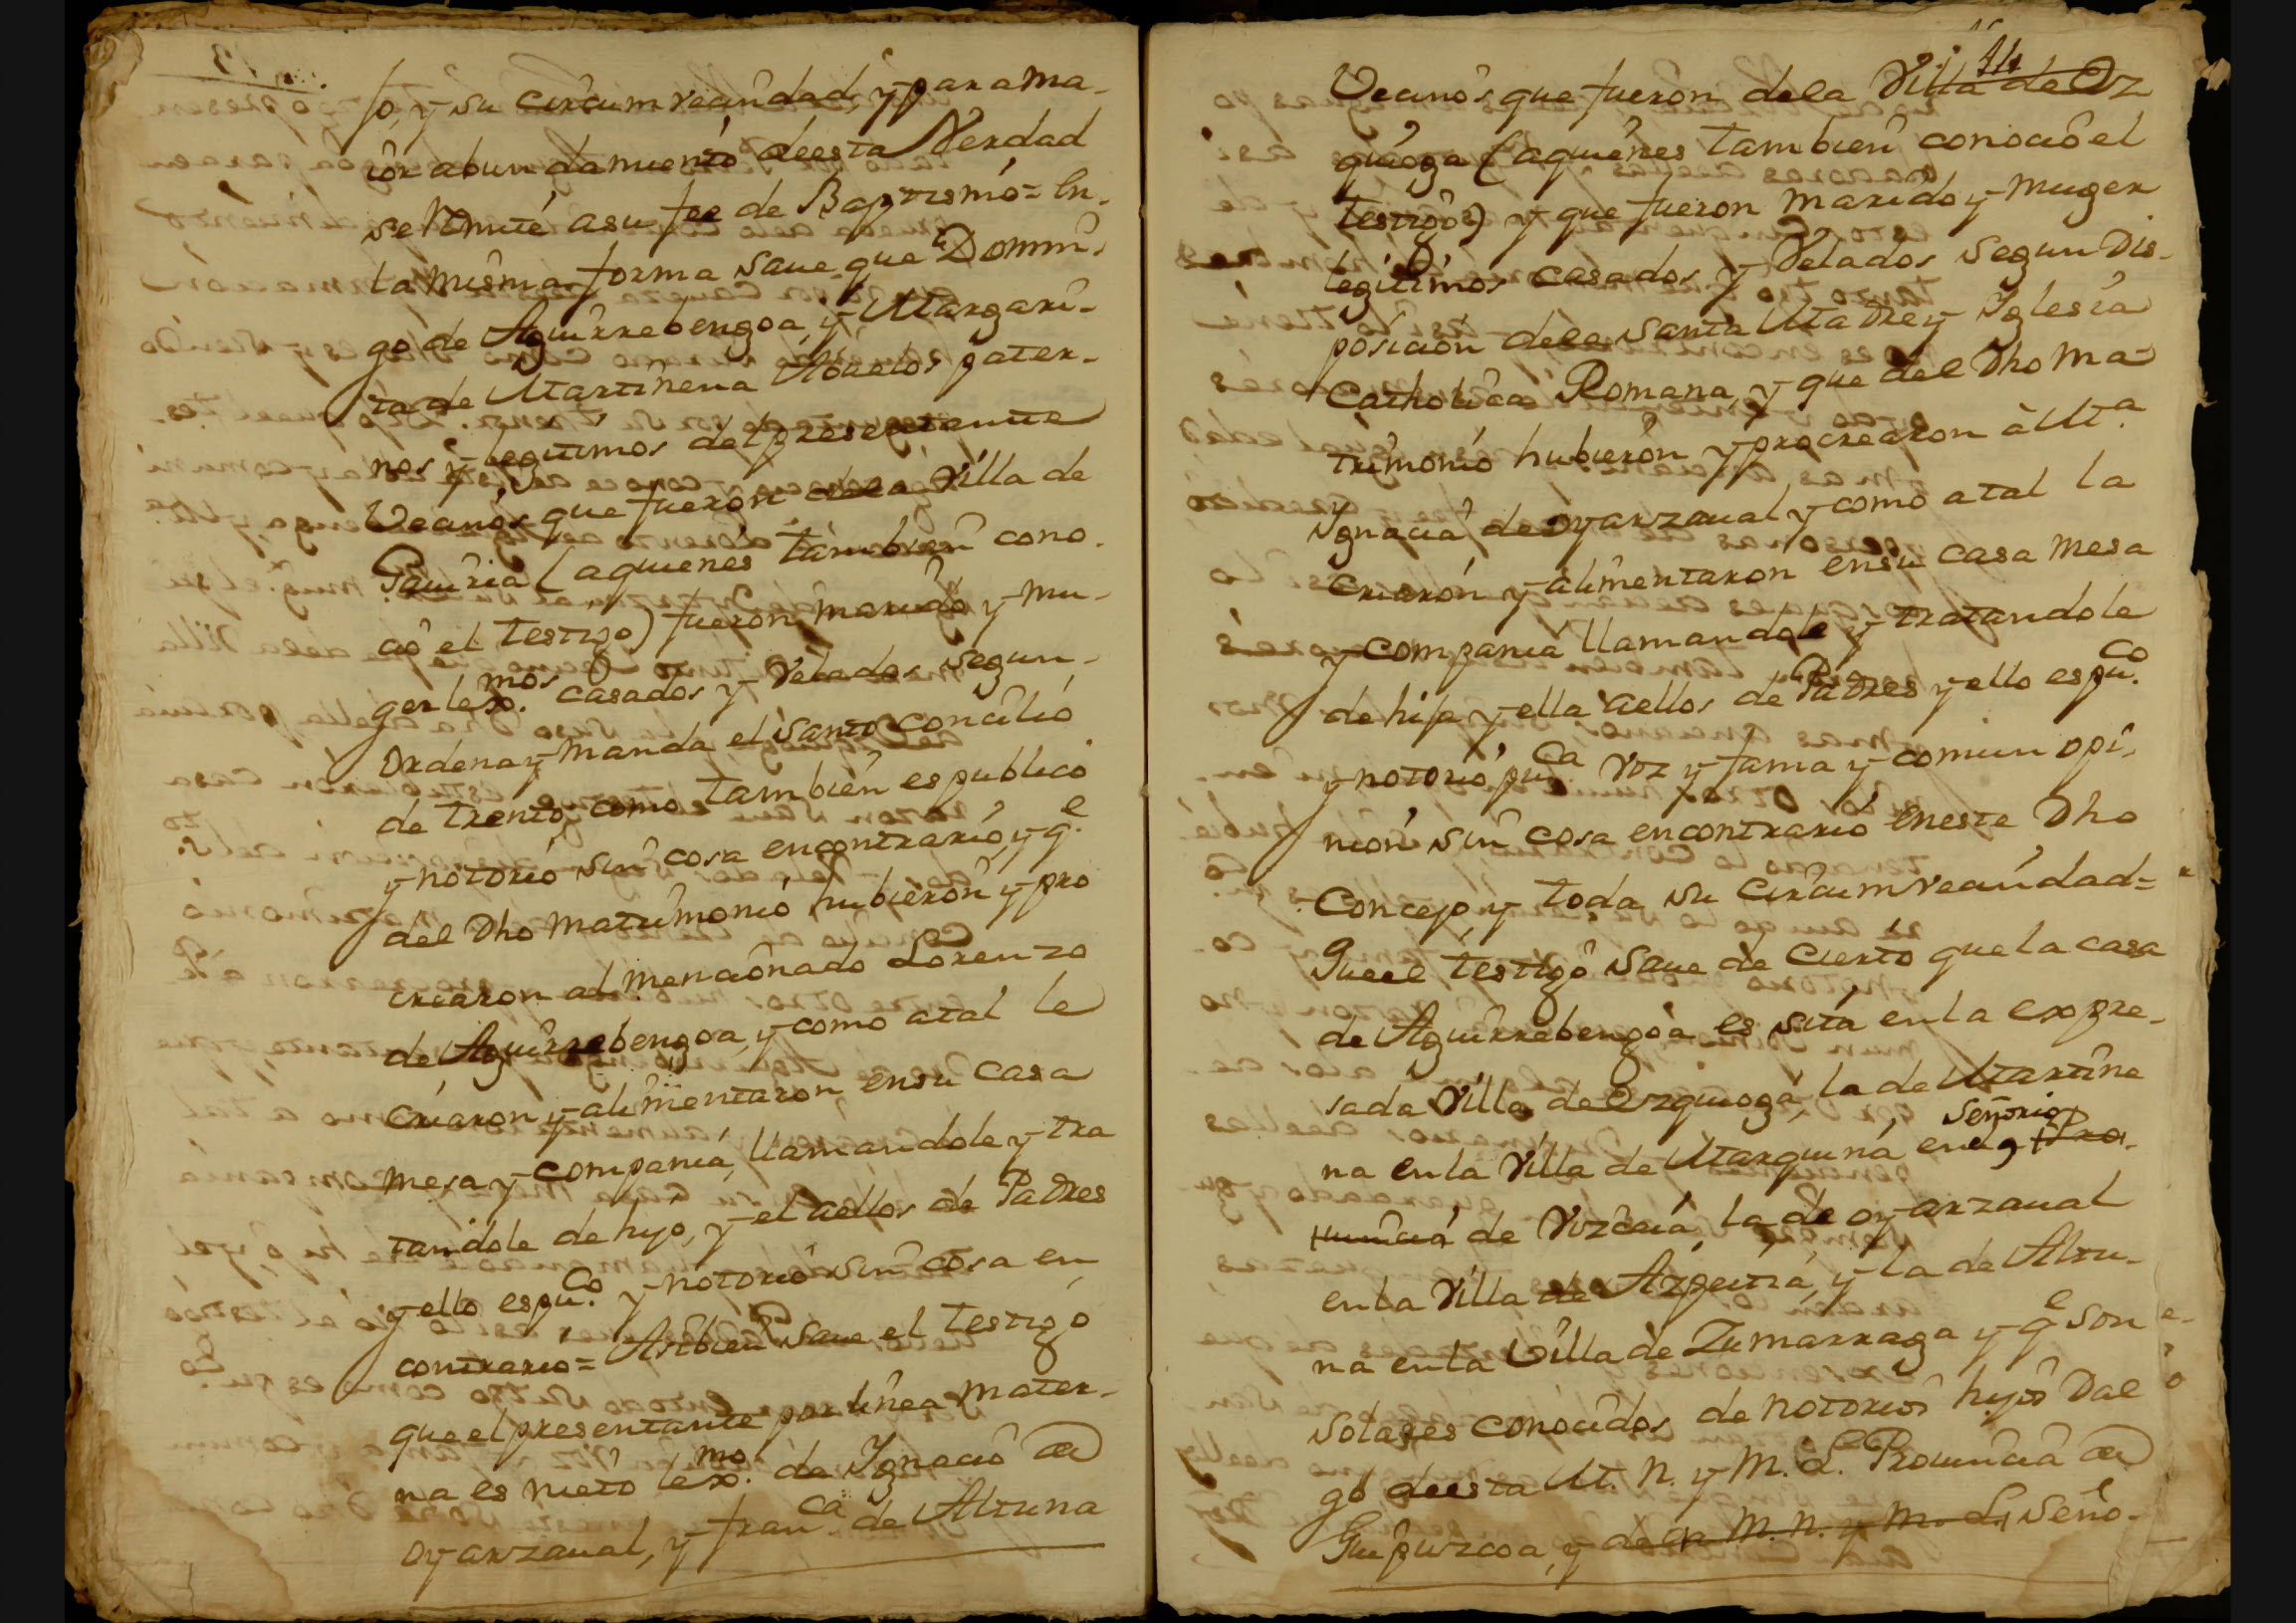 jo, y su circumvecindad, y para ma-
ior abundamiento deesta Verdad
se Remite asu fee de Baptismo = En
la misma forma save que Domin-
go de Aguirrebengoa, y Margari-
ta de Martinena Abuelos pater-
nos y legitimos del presentante
Vecinos que fueron dela Villa de
Gaviria (aquienes tambien cono-
ció el testigo) fueron marido y mu-
ger lex.mos casados y Velados segun
Ordena y manda el Santo Concilio
de trento, como tambien es publico
y notorio sin cosa encontrario, y q.e
del Dho matrimonio hubieron y pro
crearon al mencionado Lorenzo
de Aguirrebengoa, y como atal le
criaron y alimentaron ensu casa
mesa y compania, llamandole y tra
tandole de hijo, y el aellos de Padres
y ello espu.co y notorio sin cosa en
contrario = Asibien save el testigo
que el presentante por linea mater-
na es nieto lex.mo de Ignacio de
oyarzaval, y fran.ca de Altuna
14
Vecinos que fueron dela Villa de Oz
quioga (aquienes tambien conoció el
testigo) y que fueron marido y muger
legitimos casados y Velados segun Dis-
posicion dela Santa Madre y Iglesia
Catholica Romana, y que del Dho ma-
trimonio hubieron y procrearon à M.a
Ignacia de oyarzaval y como atal la
criaron y alimentaron ensu casa mesa
y compania llamandole y tratandole
de hija y ella aellos de Padres y ello espu.co
y notorio, pu.ca voz y fama y comun opi-
nion sin cosa encontrario eneste Dho
Concejo, y toda su circumvecindad =
Que el testigo save de cierto que la casa
de Aguirrebengoa es sita en la expre-
sada Villa de Ezquioga, la de Martine
na en la Villa de Marquina, en el Señorio
de Vizcaia, la de oyarzaval
en la Villa de Azpeitia, y la de Altu-
na en la Villa de Zumarraga y q.e son
solares conocidos de notorios hijos Dal
go deesta M. N. y M. L. Provincia de
Guipuzcoa, y de M. N. y M. L. Seño-